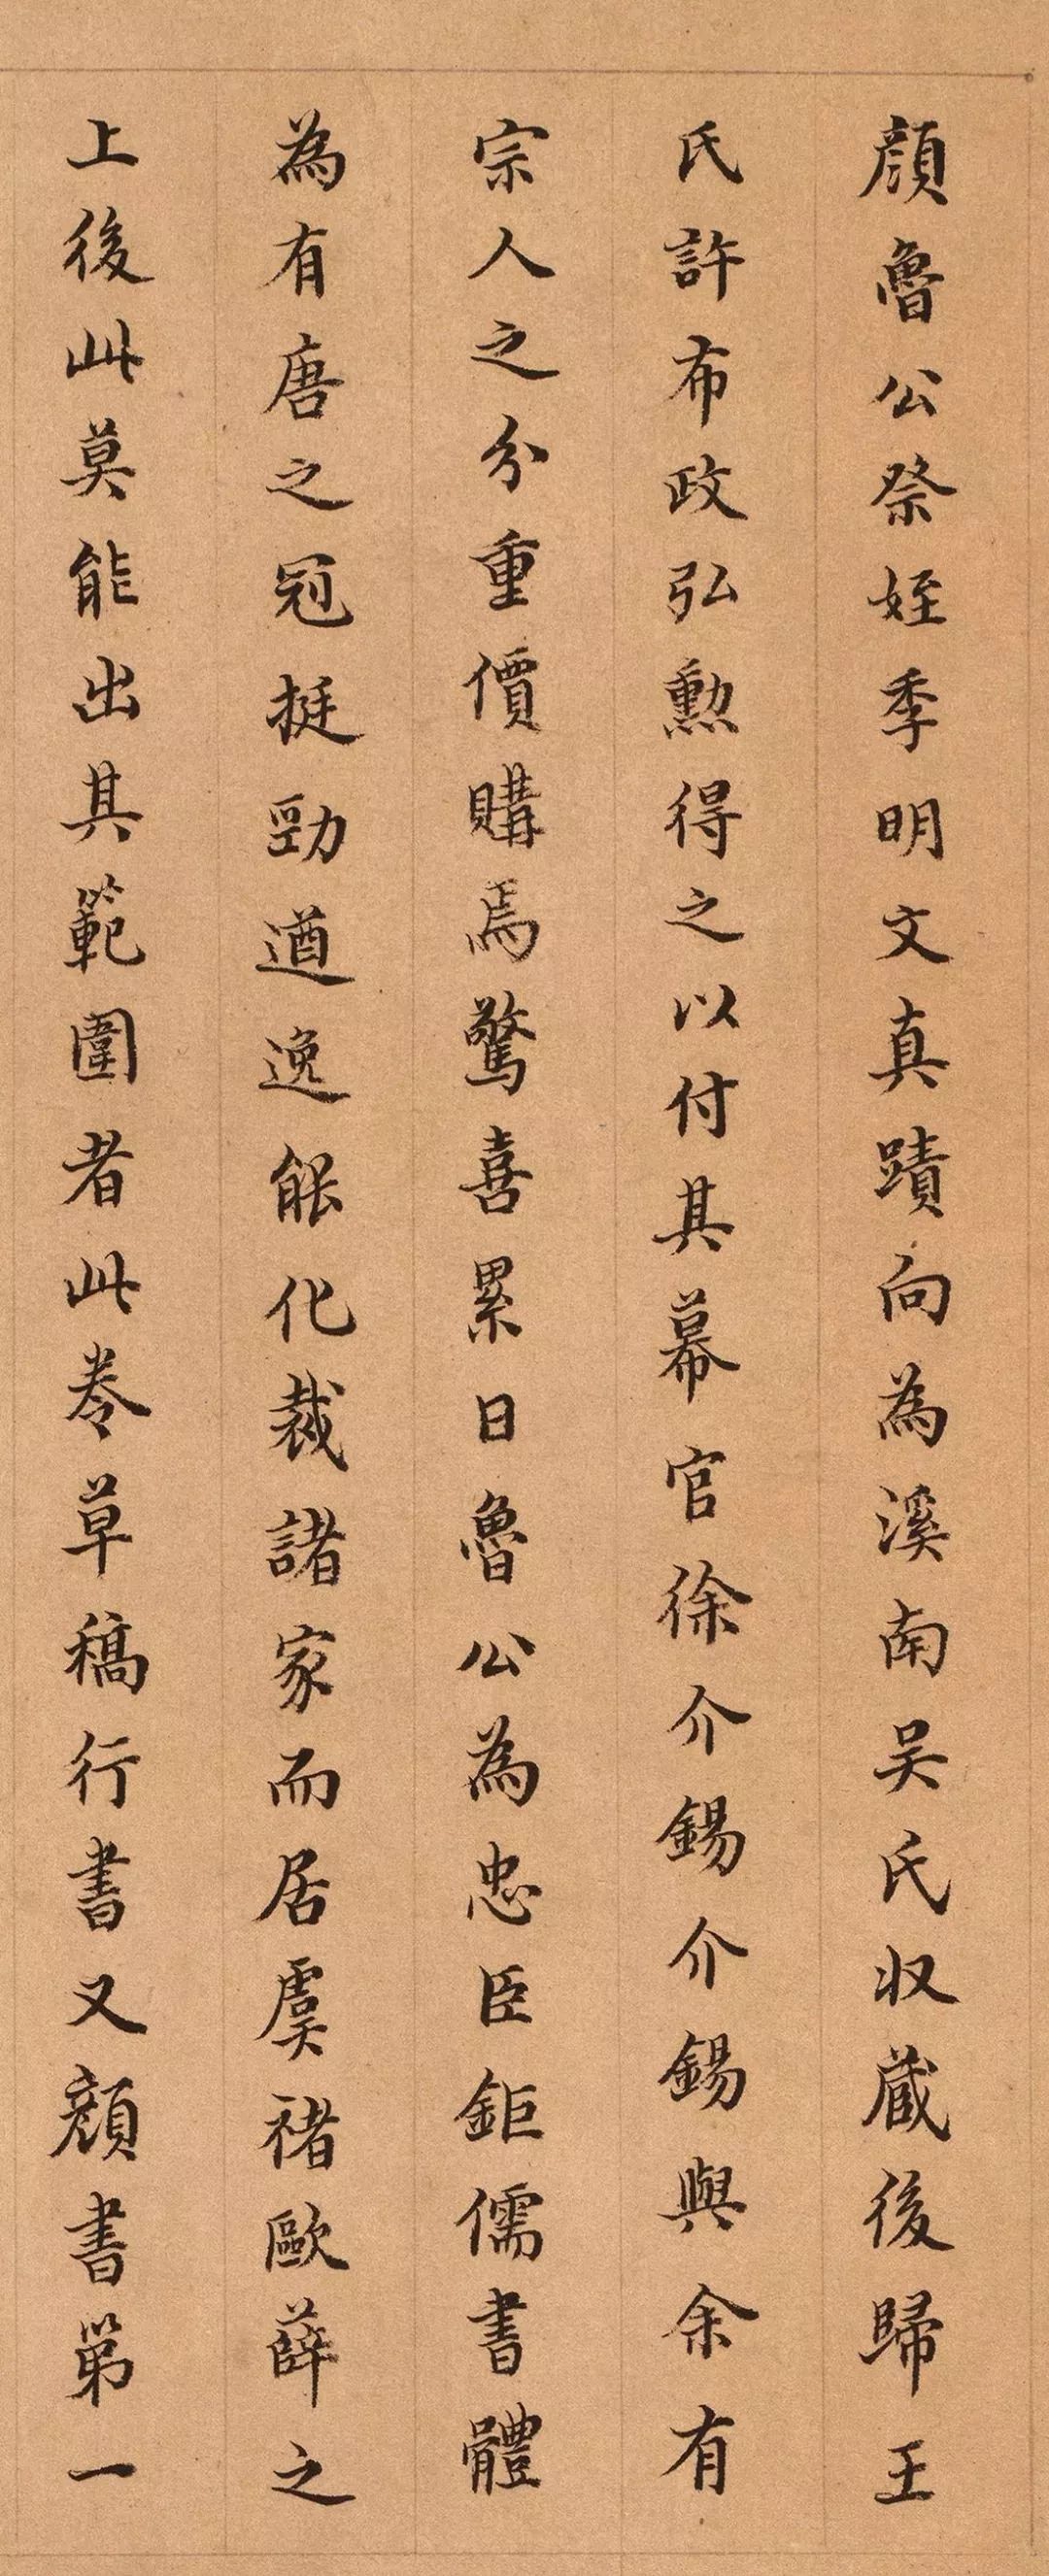 顔魯公祭姪季明文真蹟向為溪南吴氏収蔵後歸王
氏許布政弘勲得之以付其幕官徐介錫介錫與余有
宗人之分重價購焉驚喜累日魯公為忠臣鉅儒書體
為有唐之冠挺勁遒逸能化裁諸家而居虞禇歐薛之
上後此莫能出其範圍者此卷草稿行書又顔書第一